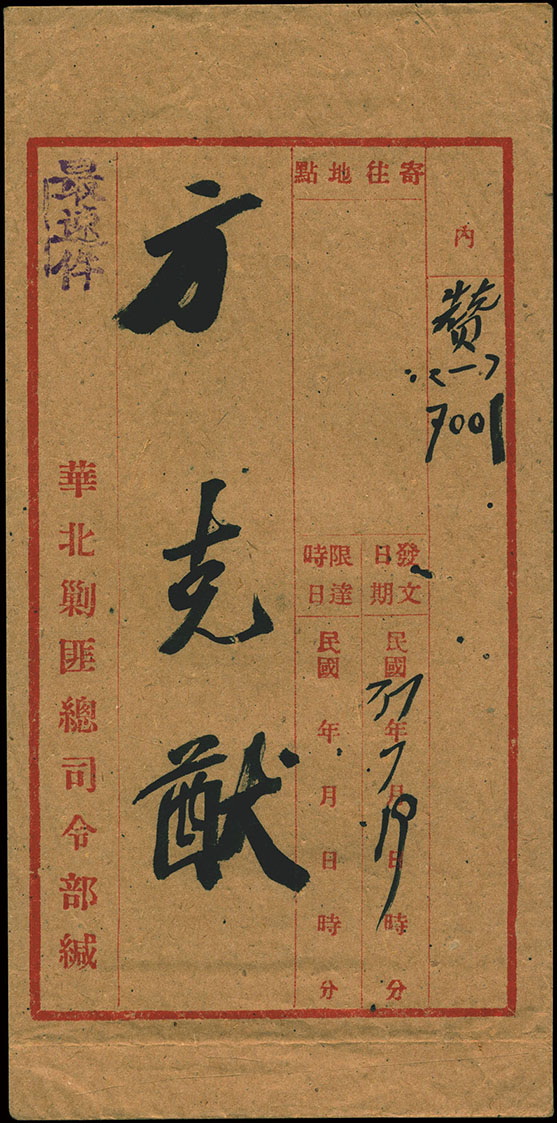 內
7001
寄往地點
發文
日期
民國37年7月19日時分
限達
時日
民國年月日時分
方克猷
最速件
華北剿匪總司令部緘